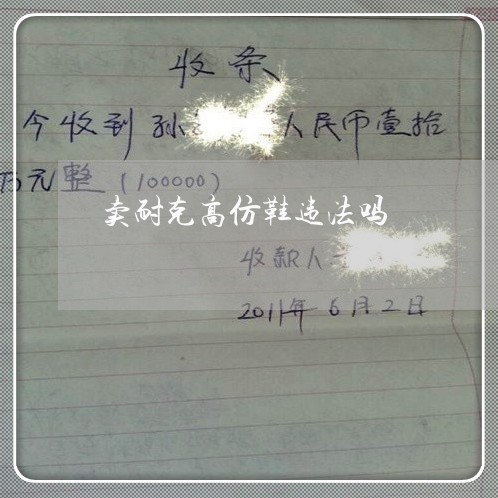 收条
今收到孙 人民币壹拾
万元整（100000）
卖耐克高仿鞋违法吗
收款人
2011年6月2日